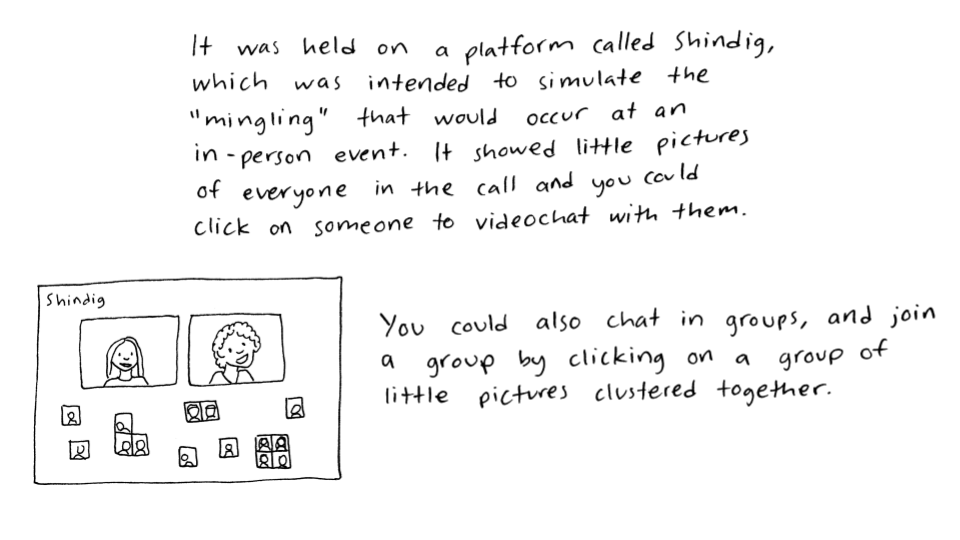 It was held on a platform called Shindig,
which was intended to simulate the
"mingling" that would occur at an
in-person event. It showed little pictures
of everyone in the call and you could
click on someone to videochat with them.
Shindig
You could also chat in groups, and join
a group by clicking on a group of
little pictures clustered together.